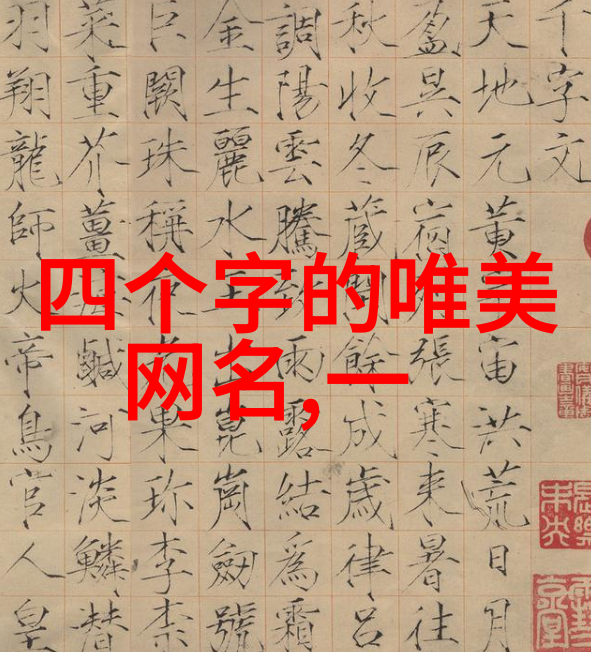 四个字的唯美
网名,一
千字文
天地元黃宙洪荒日月
盈昃辰宿張寒来暑往
秋收冬蔵閏餘成歲律呂
調陽雲騰雨露結為霜
金生麗水出崑崗劒號
巨闕珠稱果珍李柰
菜重芥薑鹹河淡鱗潜
羽翔龍師火帝鳥官人皇